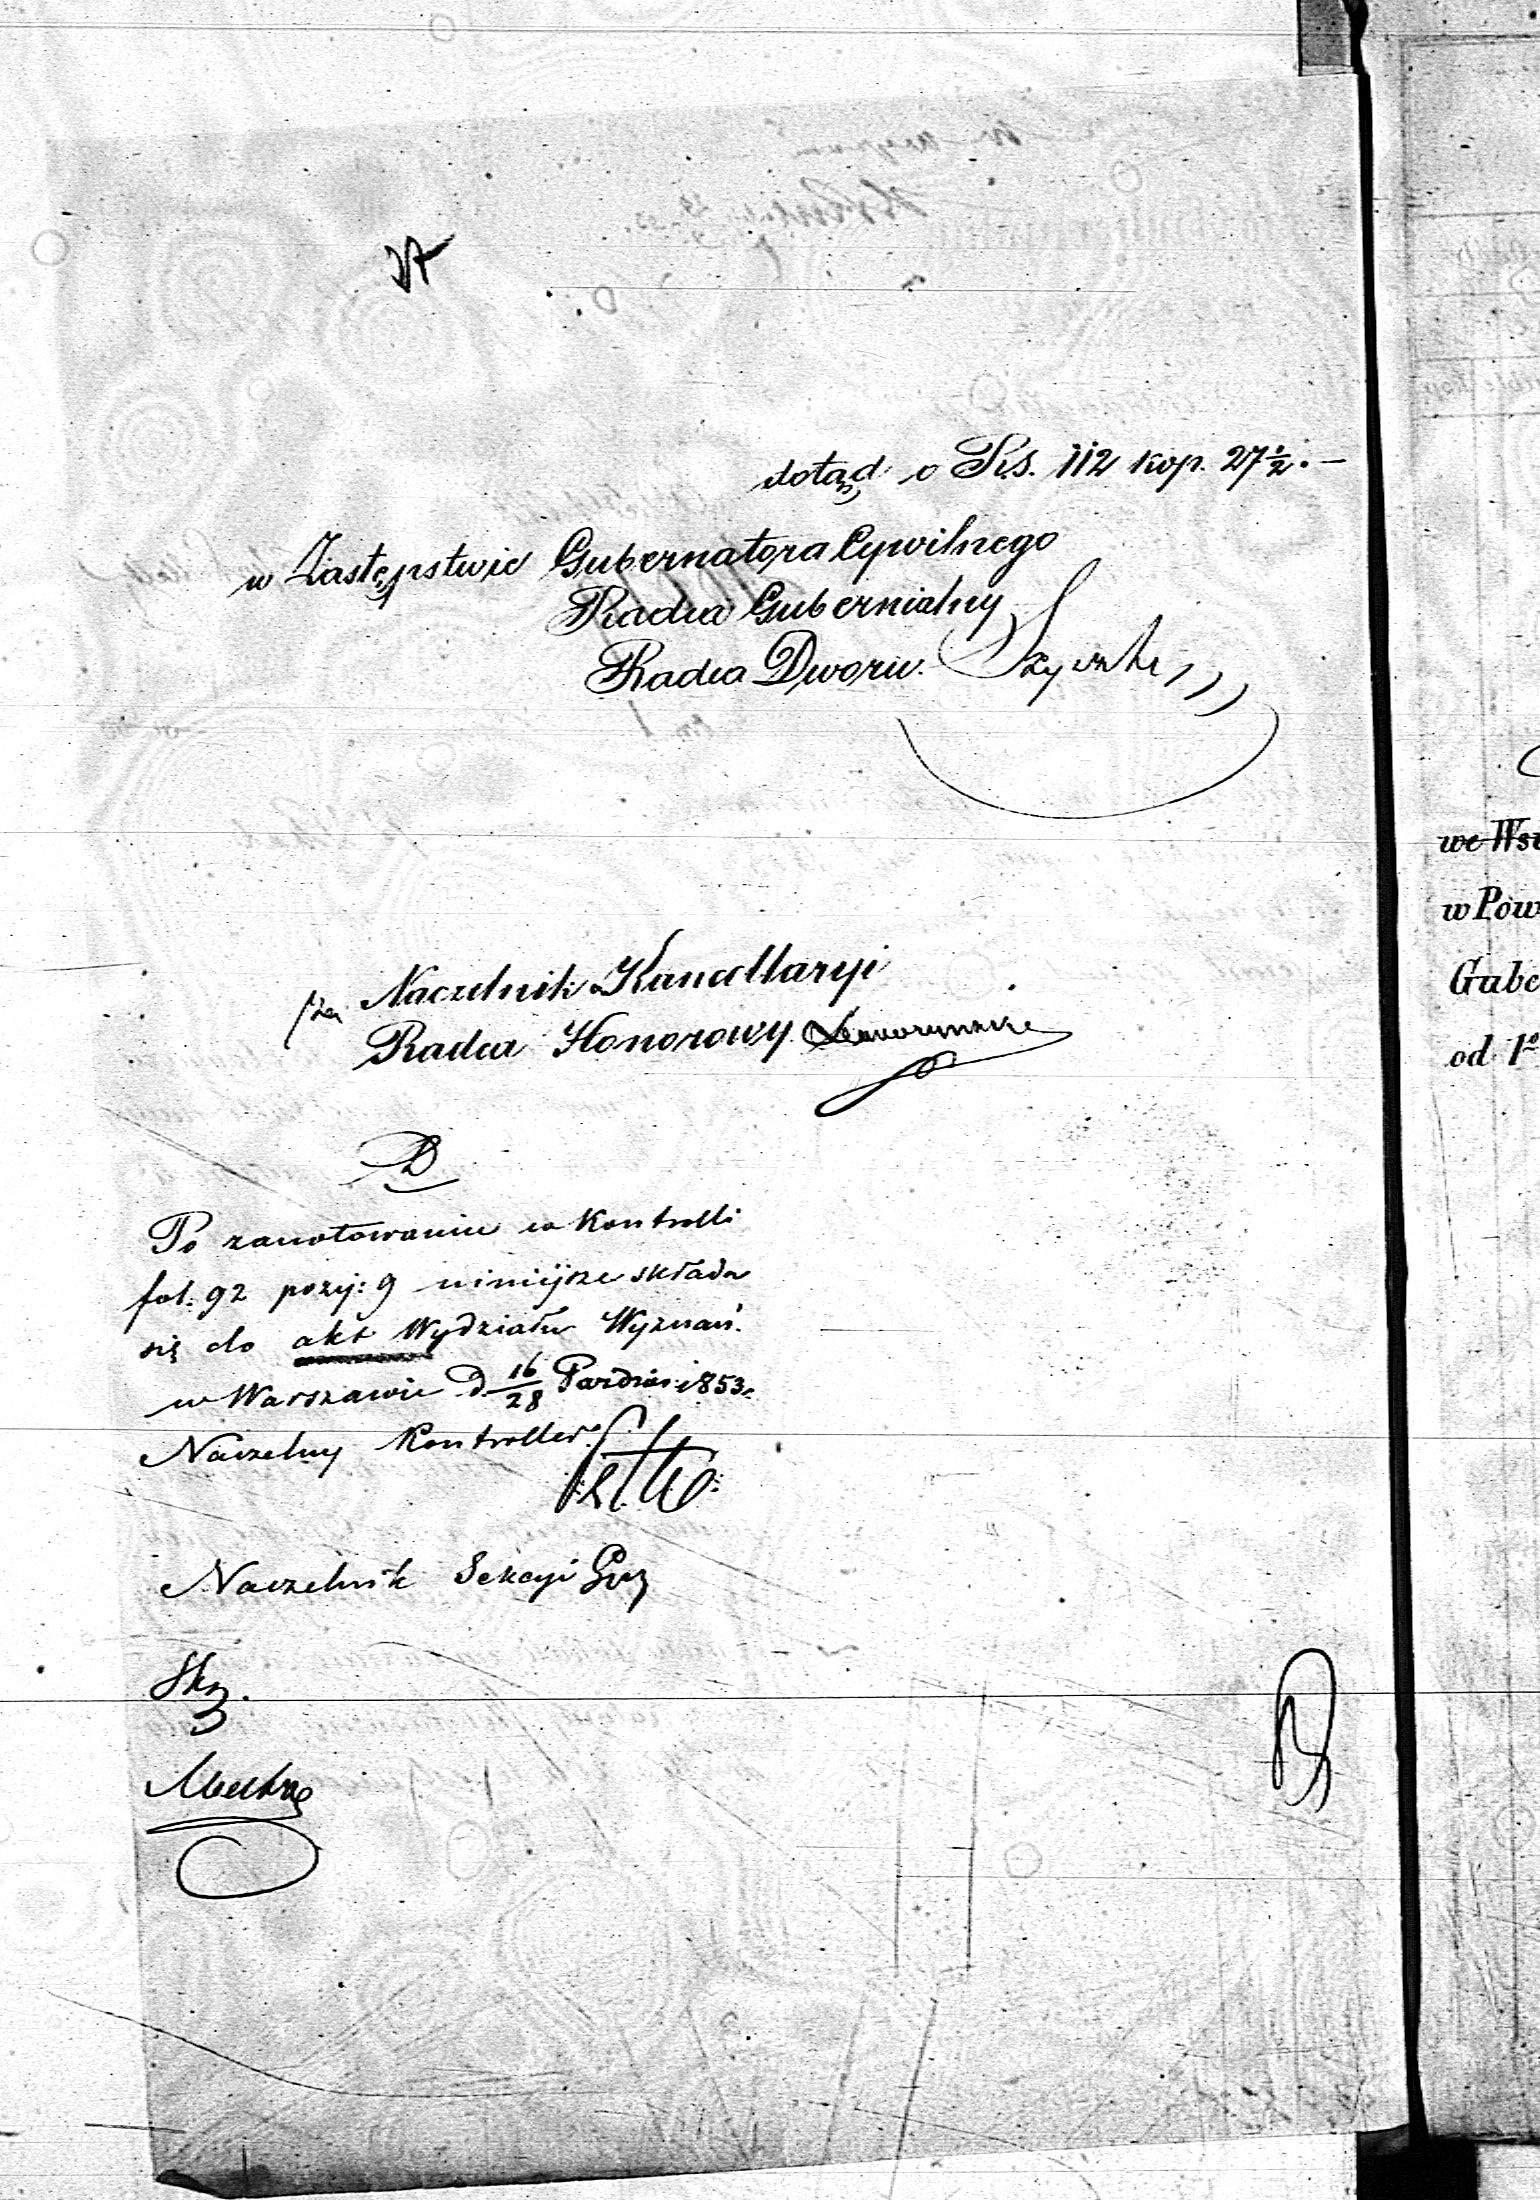 dotąd o Rs. 112 kop. 27½. —
w Zastępstwie Gubernatora Cywilnego
Radca Gubernialny
Radca Dworu.
za Naczelnik Kancellaryi
Radca Honorowy
Po zanotowaniu w Kontrolli
fol: 92 pozy: 9 niniejsze składa
się do akt Wydziału Wyznań.
w Warszawie D 16/28 Paździer: 1853.
Naczelny Kontroller
Naczelnik Sekcyi
we Ws
w Pow
Gube
od 1º